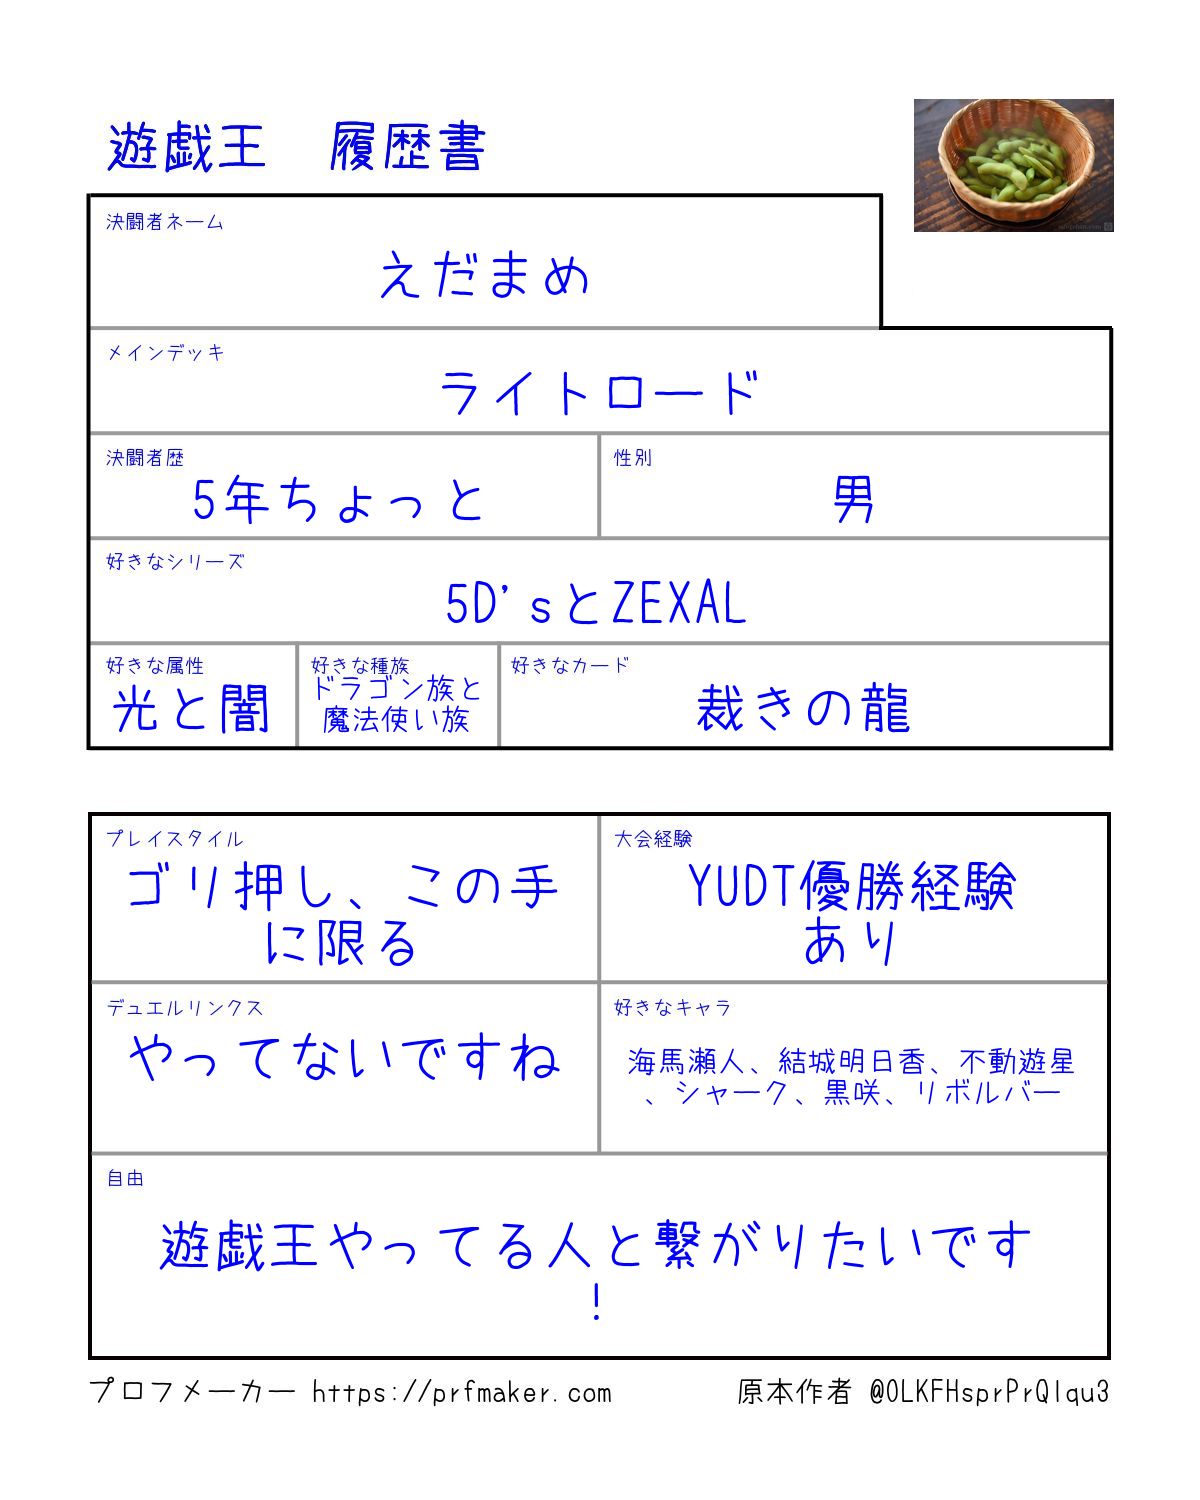 遊戯王　履歴書
決闘者ネーム
えだまめ
メインデッキ
ライトロード
決闘者歴
5年ちょっと
性別
男
好きなシリーズ
5D'sとZEXAL
好きな属性
光と闇
好きな種族
ドラゴン族と
魔法使い族
好きなカード
裁きの龍
プレイスタイル
ゴリ押し、この手
に限る
大会経験
YUDT優勝経験
あり
デュエルリンクス
やってないですね
好きなキャラ
海馬瀬人、結城明日香、不動遊星
、シャーク、黒咲、リボルバー
自由
遊戯王やってる人と繋がりたいです
！
プロフメーカー https://prfmaker.com
原本作者 @OLKFHsprPrQlqu3